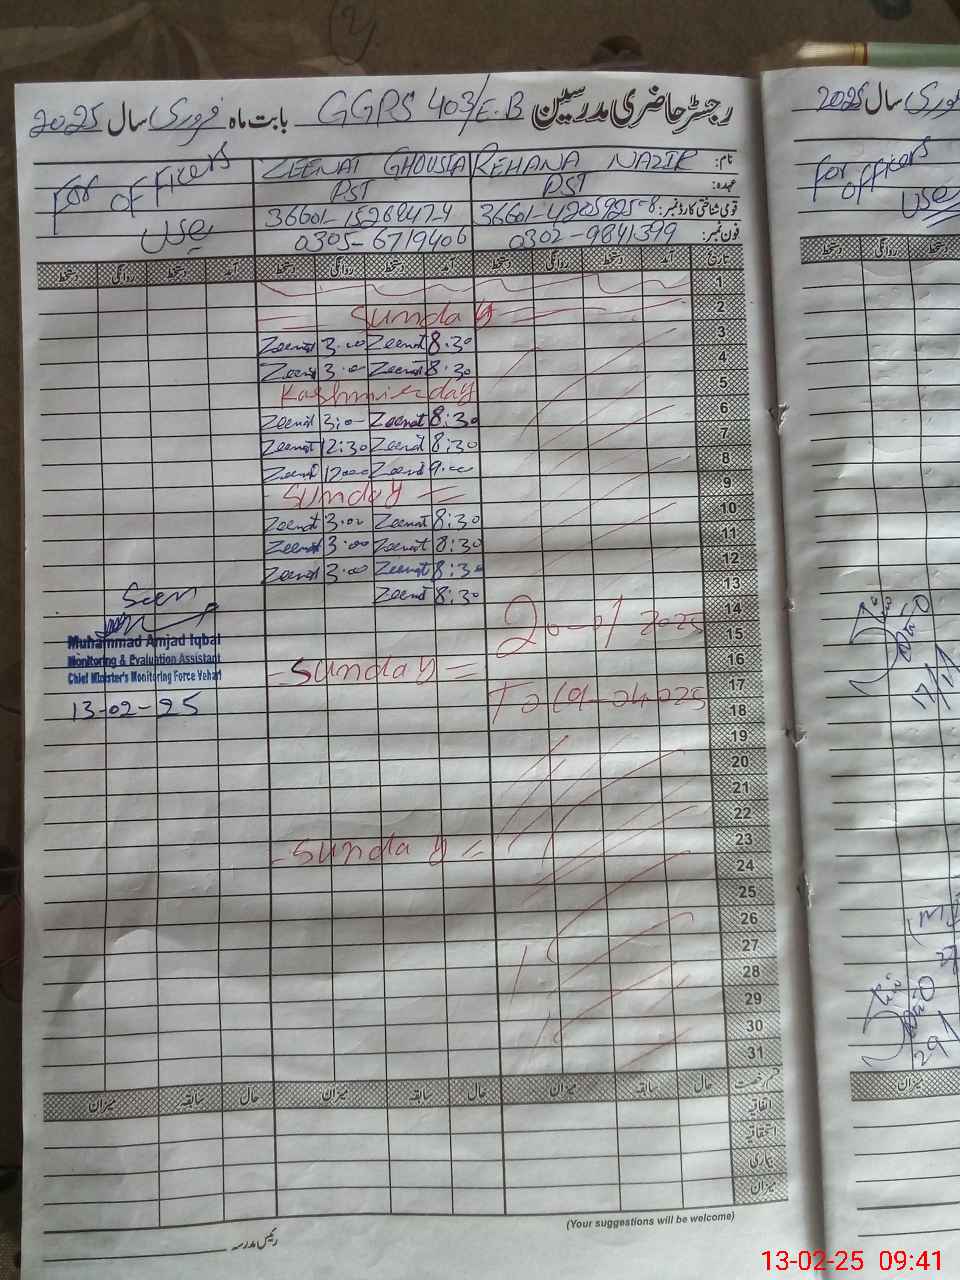 رجسٹر حاضری مدرسین GGPS 403/E.B بابت ماہ فروری سال 2025
نام: REHANA NAZIR ZEENAT GHOUSIA For officers use
عہدہ: PST PST
قومی شناختی کارڈ نمبر: 36601-4205925-8 36601-1526947-4
فون نمبر: 0302-9841399 0305-6719406
تاریخ آمد دستخط روانگی دستخط آمد دستخط روانگی دستخط آمد دستخط روانگی دستخط
1
2 Sunday
3 8:30 Zeenat 3:00 Zeenat
4 8:30 Zeenat 3:00 Zeenat
5 Kashmir day
6 8:30 Zeenat 3:00 Zeenat
7 8:30 Zeenat 12:30 Zeenat
8 9:00 Zeenat 12:00 Zeenat
9 Sunday
10 8:30 Zeenat 3:00 Zeenat
11 8:30 Zeenat 3:00 Zeenat
12 8:30 Zeenat 3:00 Zeenat
13 8:30 Zeenat
14
15 2025
16 Sunday
17 To
18
19
20
21
22
23 Sunday
24
25
26
27
28
29
30
31
Seen
Muhammad Amjad Iqbal
Monitoring & Evaluation Assistant
Chief Minister's Monitoring Force Vehari
13-02-25
قسم رخصت حال سابقہ میزان حال سابقہ میزان حال سابقہ میزان
اتفاقیہ
استحقاقیہ
بیماری
میزان
(Your suggestions will be welcome)
رئیس مدرسہ
سال 2025
For officers use
روانگی دستخط
میزان
13-02-25 09:41